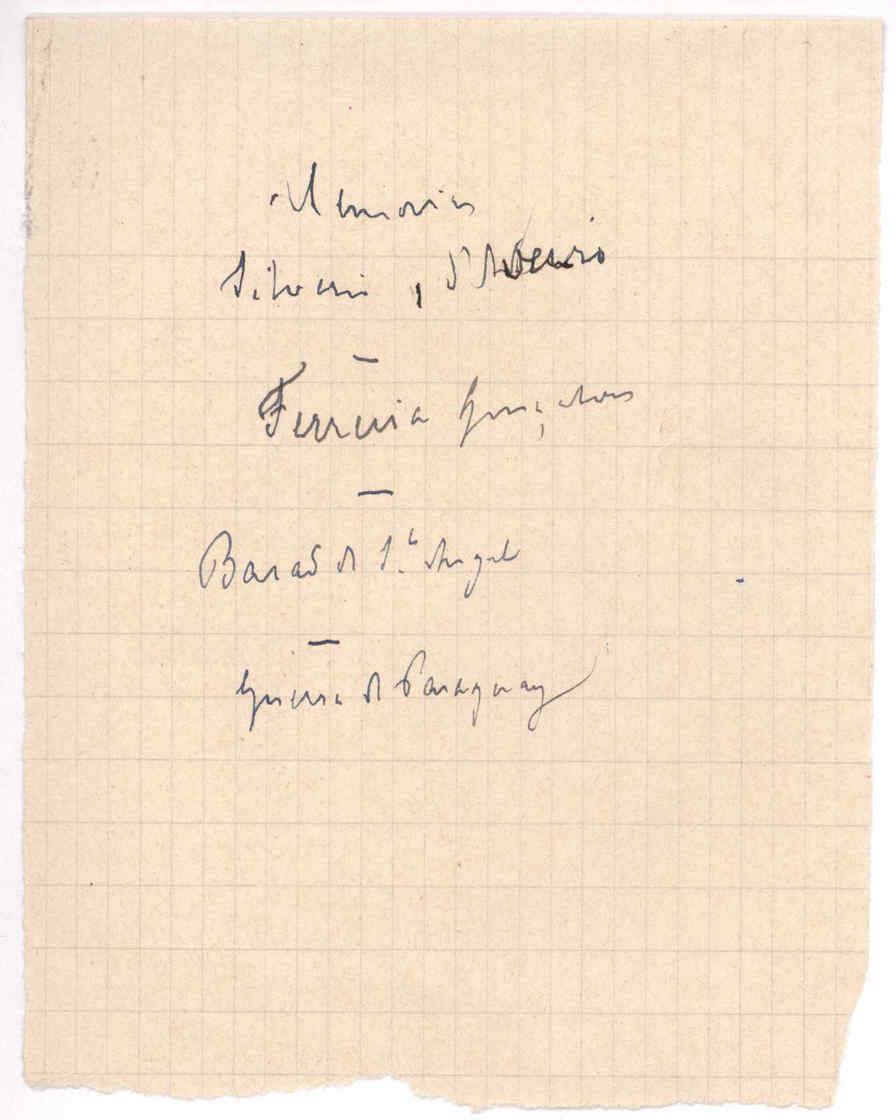 Memorias
Silverio,
—
Ferreira Gonçalves
—
Barão de S.to Angelo
—
Guerra do Paraguay